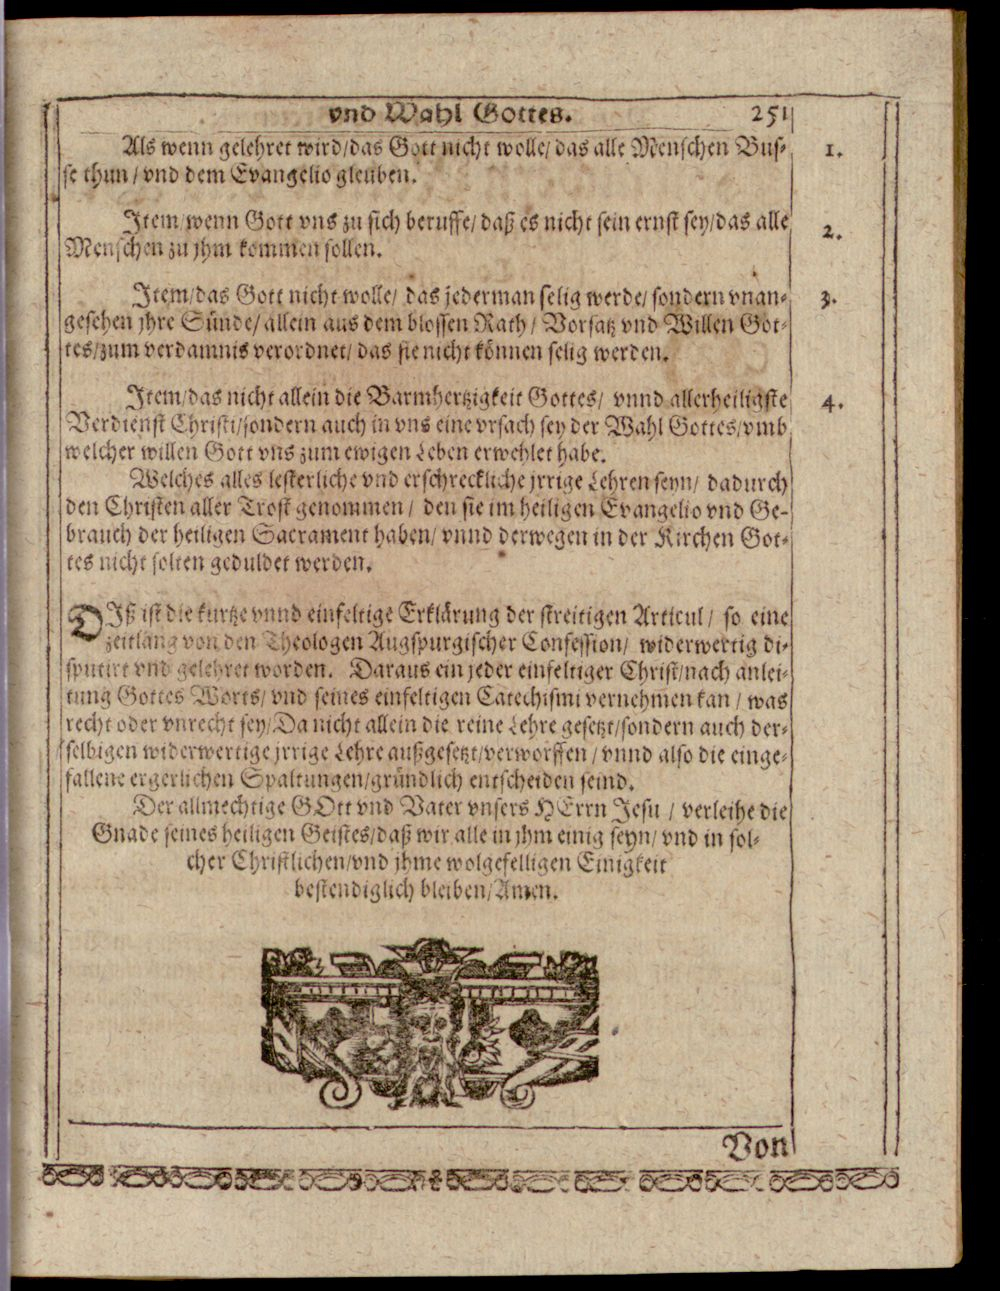 vnd Wahl Gottes. 251
Als wenn gelehret wird/das Gott nicht wolle/ das alle Menschen Bus- 1.
se thun / vnd dem Evangelio gleuben.
Item/wenn Gott vns zu sich beruffe/ daß es nicht sein ernst sey/das alle 2.
Menschen zu jhm kommen sollen.
Item/das Gott nicht wolle/ das jederman selig werde/ sondern vnan- 3.
gesehen jhre Sünde/ allein aus dem blossen Rath / Vorsatz vnd Willen Got-
tes/zum verdamnis verordnet/ das sie nicht können selig werden.
Item/das nicht allein die Barmhertzigkeit Gottes/ vnnd allerheiligste 4.
Verdienst Christi/sondern auch in vns eine vrsach sey der Wahl Gottes/vmb
welcher willen Gott vns zum ewigen Leben erwehlet habe.
Welches alles lesterliche vnd erschreckliche jrrige Lehren seyn/ dadurch
den Christen aller Trost genommen / den sie im heiligen Evangelio vnd Ge-
brauch der heiligen Sacrament haben/ vnnd derwegen in der Kirchen Got-
tes nicht solten geduldet werden.
DIß ist die kurtze vnnd einfeltige Erklärung der streitigen Articul / so eine
zeitlang von den Theologen Augspurgischer Confession/ widerwertig di-
sputirt vnd gelehret worden. Daraus ein jeder einfeltiger Christ/nach anlei-
tung Gottes Worts/ vnd seines einfeltigen Catechismi vernehmen kan / was
recht oder vnrecht sey/Da nicht allein die reine Lehre gesetzt/sondern auch der-
selbigen widerwertige jrrige Lehre außgesetzt/verworffen / vnnd also die einge-
fallene ergerlichen Spaltungen/gründlich entscheiden seind.
Der allmechtige GOtt vnd Vater vnsers HErrn Jesu / verleihe die
Gnade seines heiligen Geistes/daß wir alle in jhm einig seyn/ vnd in sol-
cher Christlichen/vnd jhme wolgefelligen Einigkeit
bestendiglich bleiben/Amen.
Von